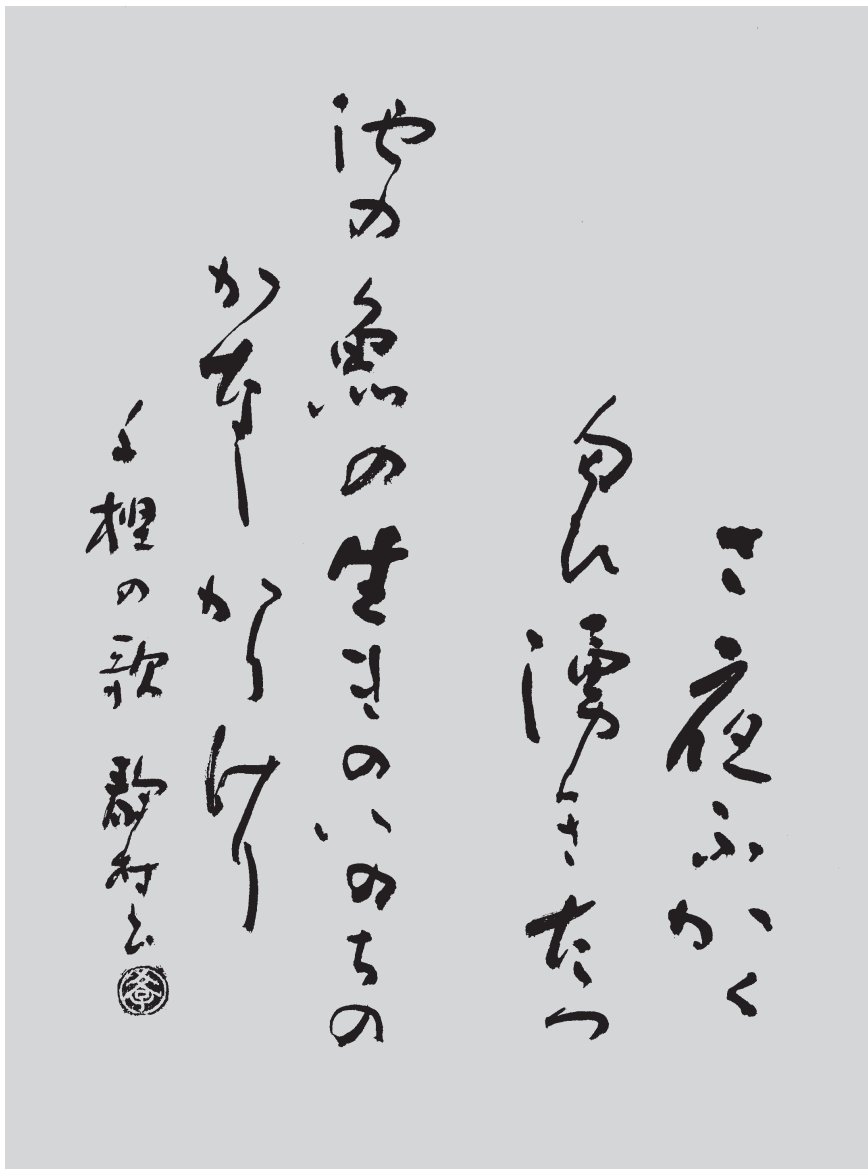 さ夜ふかく
匂ひ湧きたつ
池の魚の生きのいのちの
かなしかりけり
千樫の歌 静村書